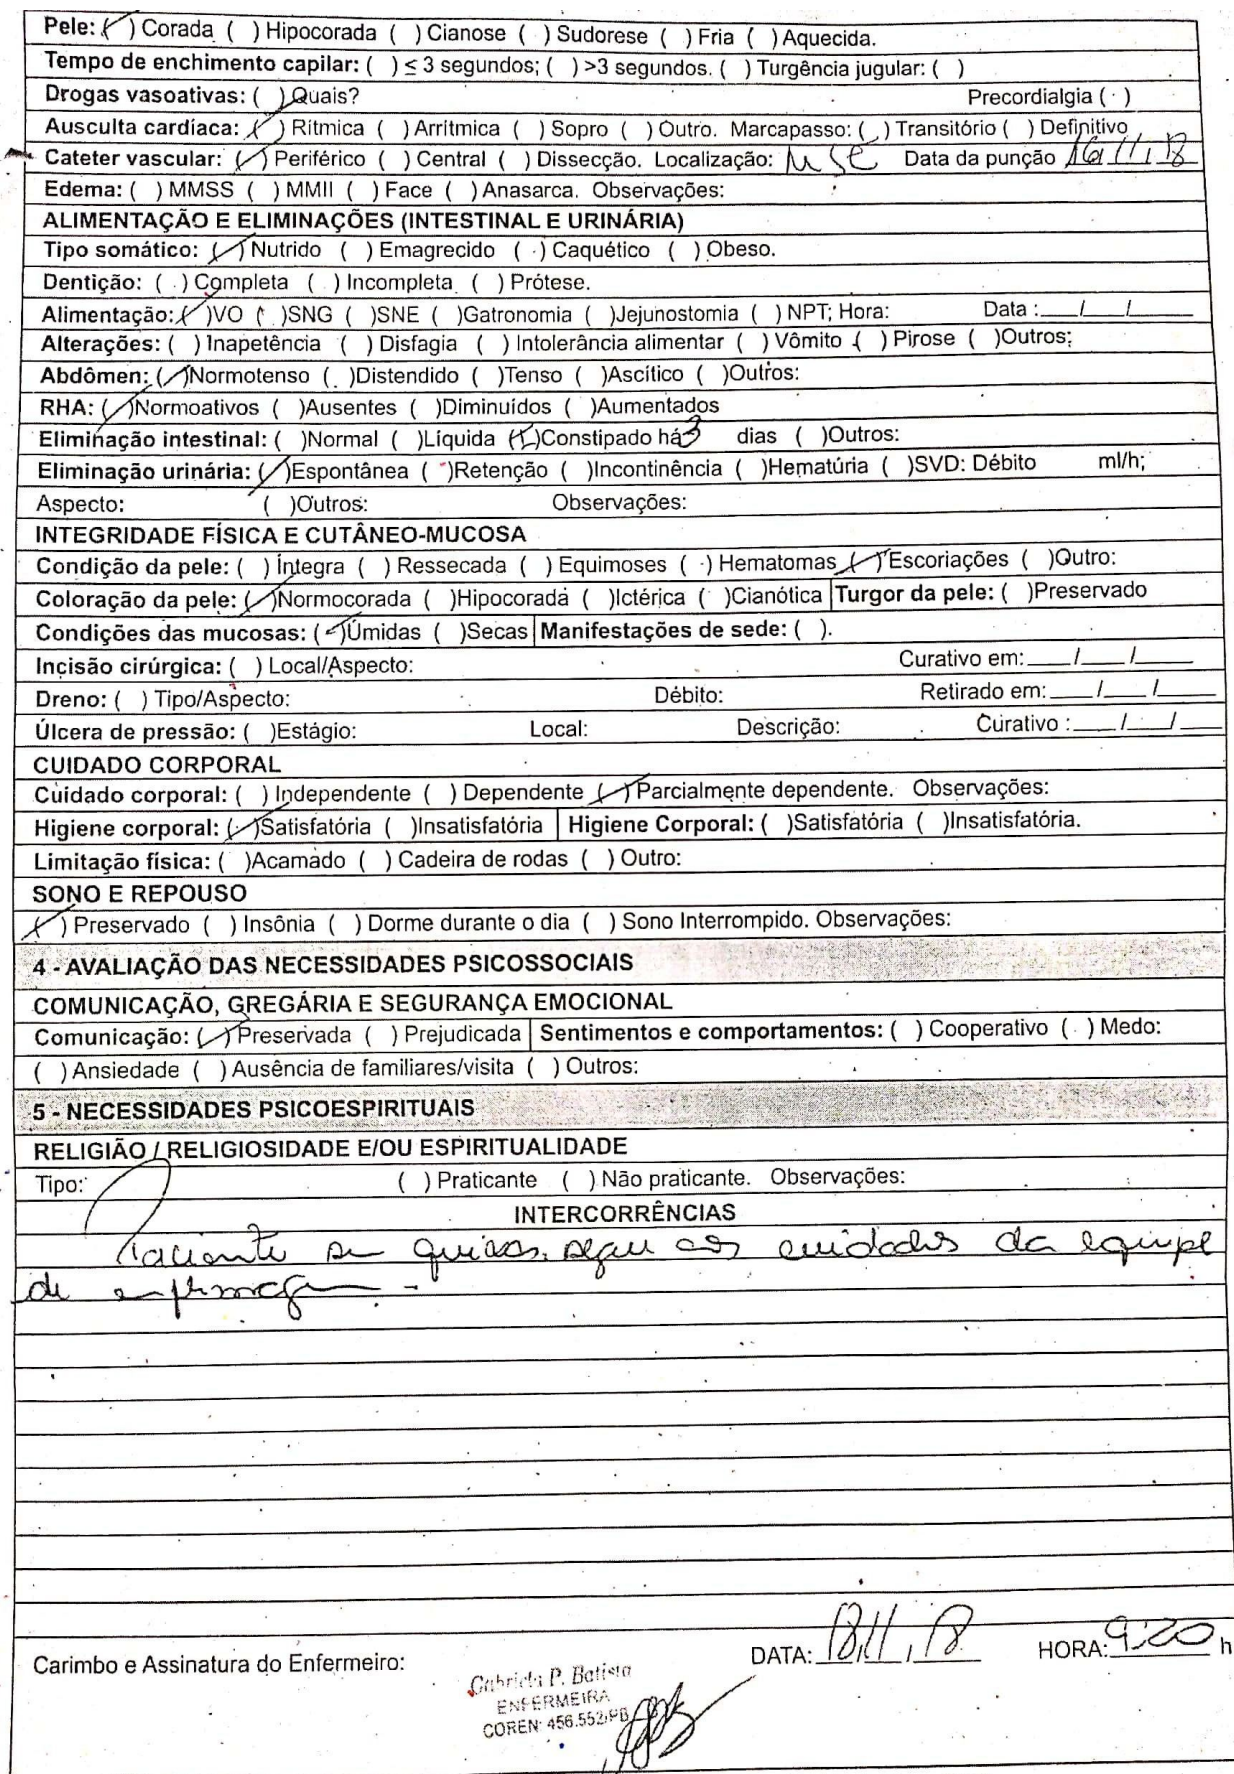 Pele: (/) Corada ( ) Hipocorada ( ) Cianose ( ) Sudorese ( ) Fria ( ) Aquecida.
Tempo de enchimento capilar: ( ) ≤ 3 segundos; ( ) >3 segundos. ( ) Turgência jugular: ( )
Drogas vasoativas: ( ) Quais? Precordialgia ( )
Ausculta cardíaca: (/) Rítmica ( ) Arrítmica ( ) Sopro ( ) Outro. Marcapasso: ( ) Transitório ( ) Definitivo
Cateter vascular: (/) Periférico ( ) Central ( ) Dissecção. Localização: MSE Data da punção 16/11/18
Edema: ( ) MMSS ( ) MMII ( ) Face ( ) Anasarca. Observações:
ALIMENTAÇÃO E ELIMINAÇÕES (INTESTINAL E URINÁRIA)
Tipo somático: (/) Nutrido ( ) Emagrecido ( ) Caquético ( ) Obeso.
Dentição: ( ) Completa ( ) Incompleta ( ) Prótese.
Alimentação: (/)VO ( )SNG ( )SNE ( )Gatronomia ( )Jejunostomia ( ) NPT; Hora: Data :___/___/___
Alterações: ( ) Inapetência ( ) Disfagia ( ) Intolerância alimentar ( ) Vômito ( ) Pirose ( )Outros:
Abdômen: (/)Normotenso ( )Distendido ( )Tenso ( )Ascítico ( )Outros:
RHA: (/)Normoativos ( )Ausentes ( )Diminuídos ( )Aumentados
Eliminação intestinal: ( )Normal ( )Líquida (x)Constipado há 3 dias ( )Outros:
Eliminação urinária: (/)Espontânea ( )Retenção ( )Incontinência ( )Hematúria ( )SVD: Débito ml/h;
Aspecto: ( )Outros: Observações:
INTEGRIDADE FÍSICA E CUTÂNEO-MUCOSA
Condição da pele: ( ) Íntegra ( ) Ressecada ( ) Equimoses ( ) Hematomas (/)Escoriações ( )Outro:
Coloração da pele: (/)Normocorada ( )Hipocorada ( )Ictérica ( )Cianótica Turgor da pele: ( )Preservado
Condições das mucosas: (/)Úmidas ( )Secas Manifestações de sede: ( ).
Incisão cirúrgica: ( ) Local/Aspecto: Curativo em:___/___/___
Dreno: ( ) Tipo/Aspecto: Débito: Retirado em:___/___/___
Úlcera de pressão: ( )Estágio: Local: Descrição: Curativo :___/___/___
CUIDADO CORPORAL
Cuidado corporal: ( ) Independente ( ) Dependente (/)Parcialmente dependente. Observações:
Higiene corporal: (/)Satisfatória ( )Insatisfatória Higiene Corporal: ( )Satisfatória ( )Insatisfatória.
Limitação física: ( )Acamado ( ) Cadeira de rodas ( ) Outro:
SONO E REPOUSO
(/) Preservado ( ) Insônia ( ) Dorme durante o dia ( ) Sono Interrompido. Observações:
4 - AVALIAÇÃO DAS NECESSIDADES PSICOSSOCIAIS
COMUNICAÇÃO, GREGÁRIA E SEGURANÇA EMOCIONAL
Comunicação: (/)Preservada ( ) Prejudicada Sentimentos e comportamentos: ( ) Cooperativo ( ) Medo:
( ) Ansiedade ( ) Ausência de familiares/visita ( ) Outros:
5 - NECESSIDADES PSICOESPIRITUAIS
RELIGIÃO / RELIGIOSIDADE E/OU ESPIRITUALIDADE
Tipo: ( ) Praticante ( ) Não praticante. Observações:
INTERCORRÊNCIAS
Paciente queixas, cuidados da equipe
de enfermagem -
DATA: 18/11/18 HORA: 9:20 h
Carimbo e Assinatura do Enfermeiro:
Gabriela P. Batista
ENFERMEIRA
COREN: 456.552/PB